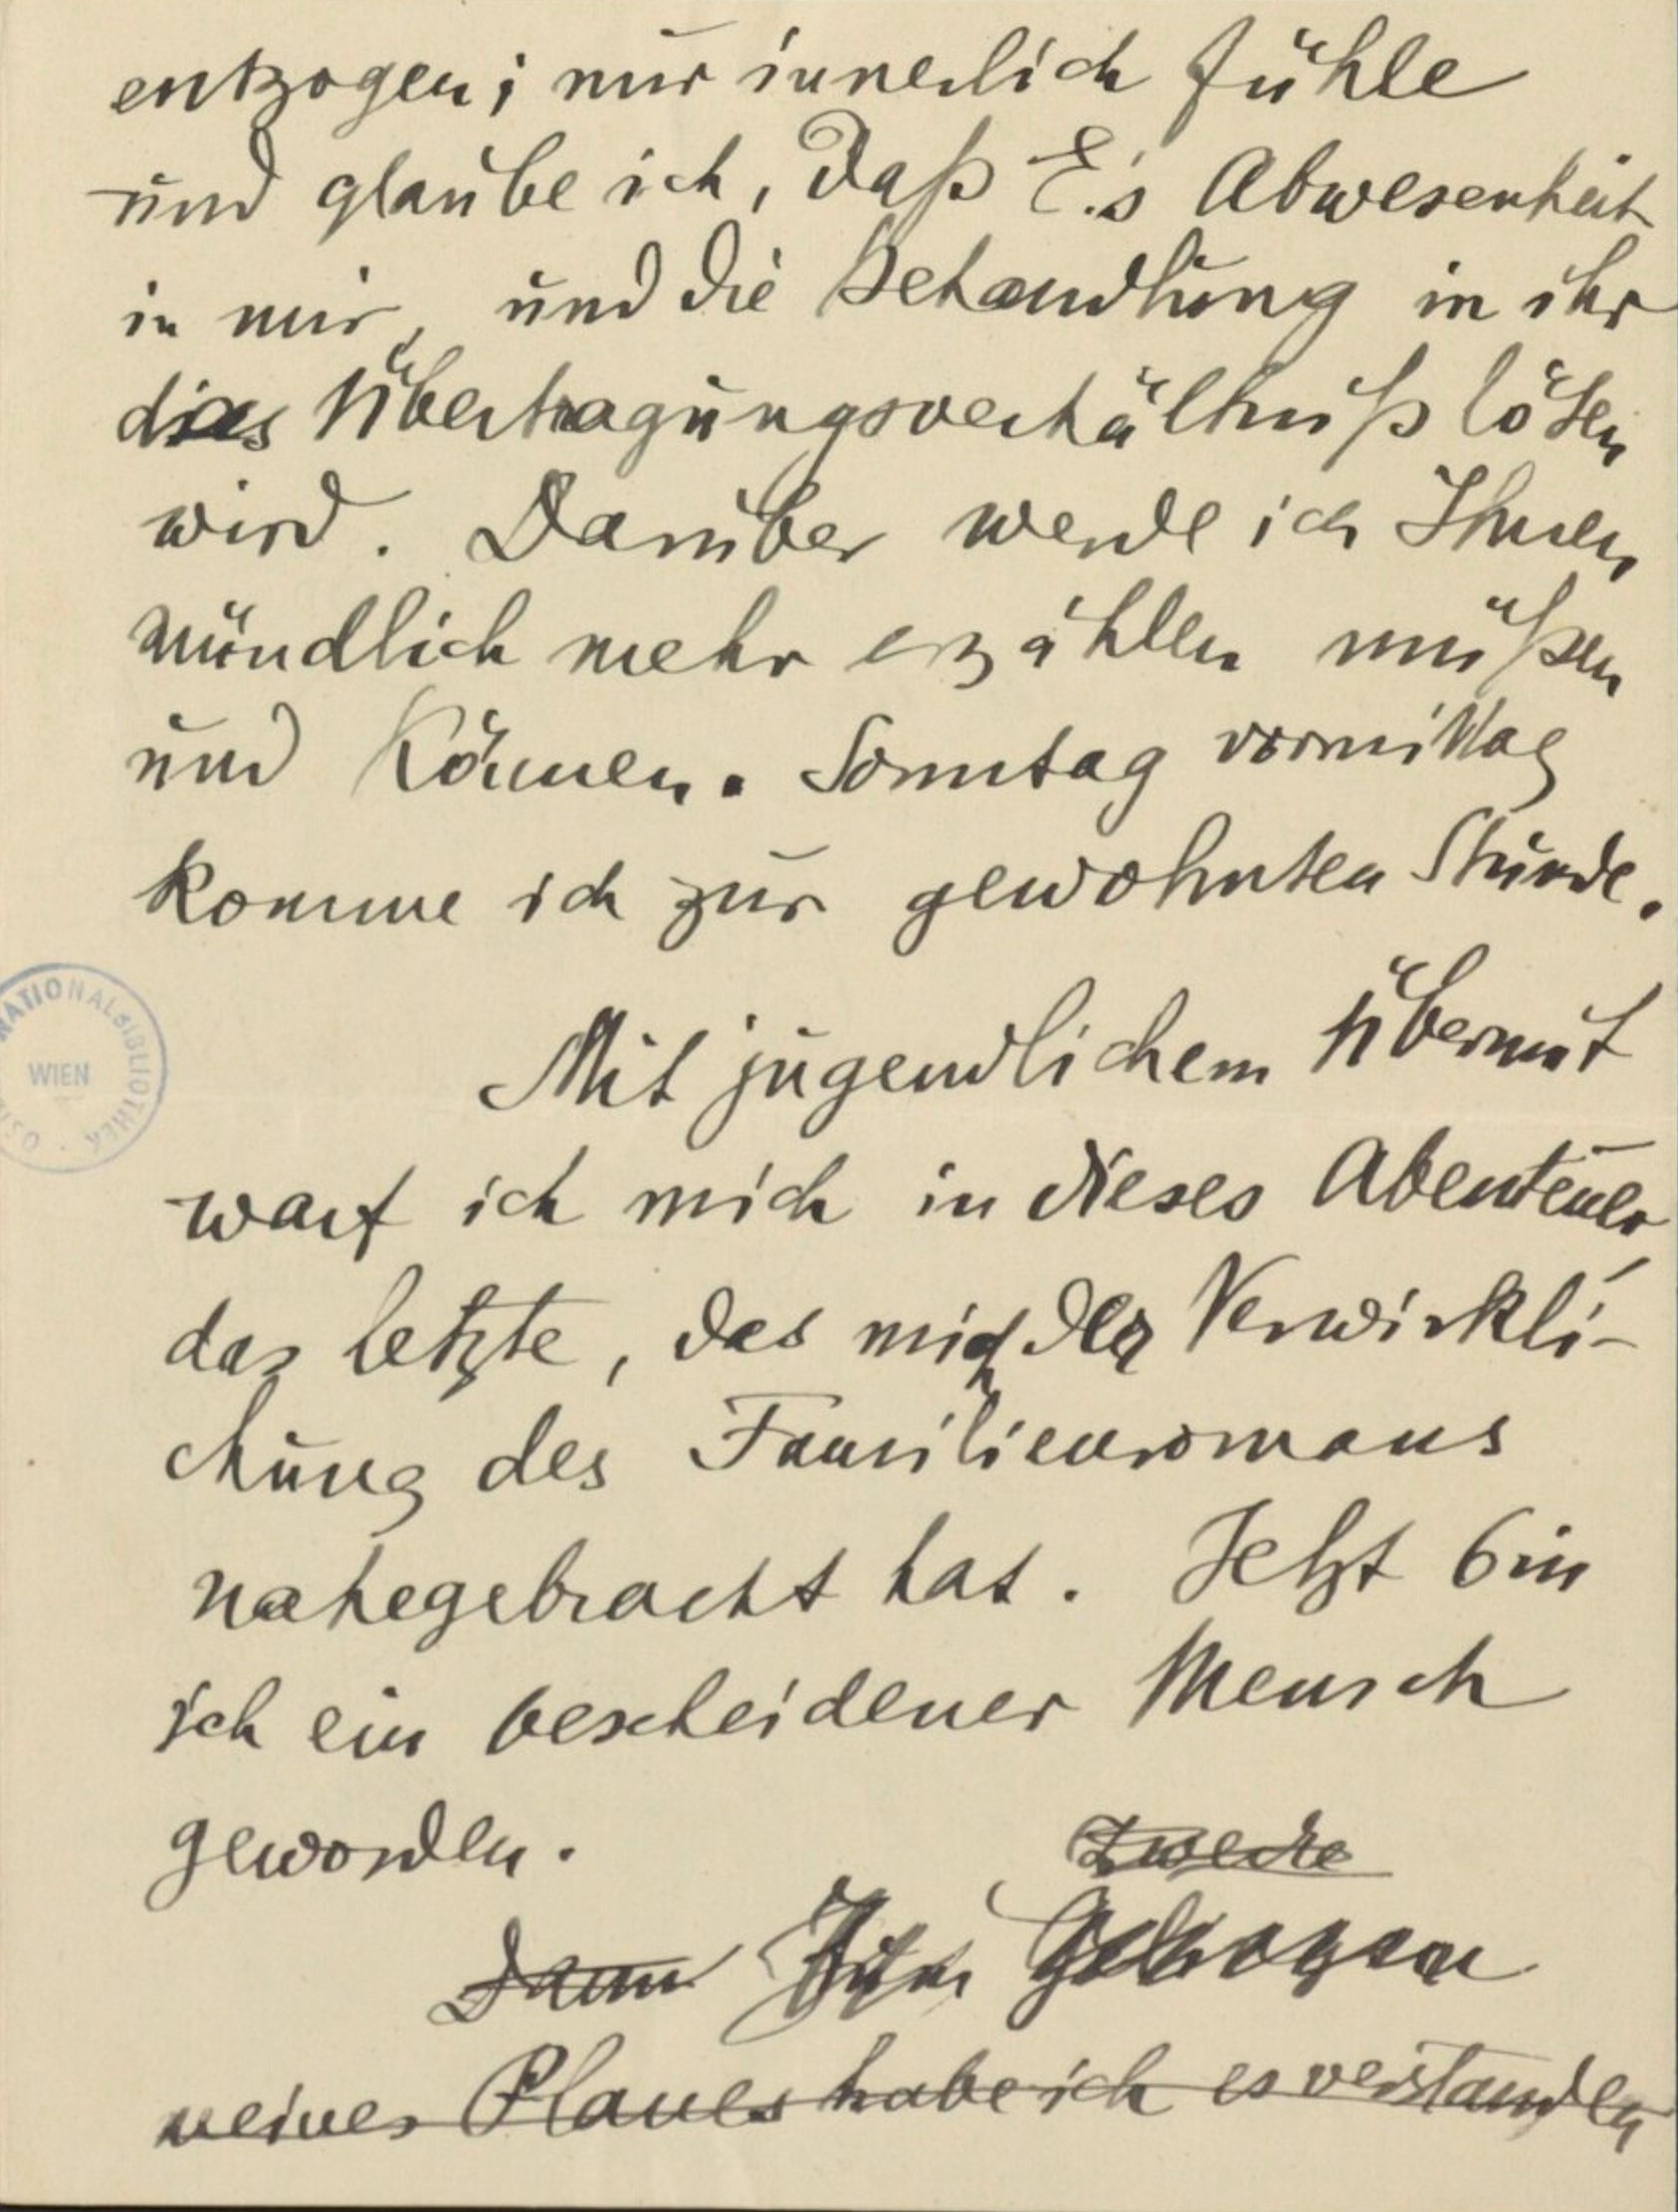 entzogen; nur innerlich fühle
und glaube ich, daß E.'s Abwesenheit
in mir, und die Behandlung in ihr
dies Übertragungsverhältniß lösen
wird. Darüber werde ich Ihnen
mündlich mehr erzählen müßen
und können. Sonntag vormittag
komme ich zur gewohnten Stunde.
NATIONALBIBLIOTHEK
WIEN
Mit jugendlichem Übermut
warf ich mich in dieses Abenteuer,
das letzte, das mich der Verwirkli-
chung des Familienromans
nahegebracht hat. Jetzt bin
ich ein bescheidener Mensch
geworden.
Zwecke
Dann
meines Planes habe ich es verstanden